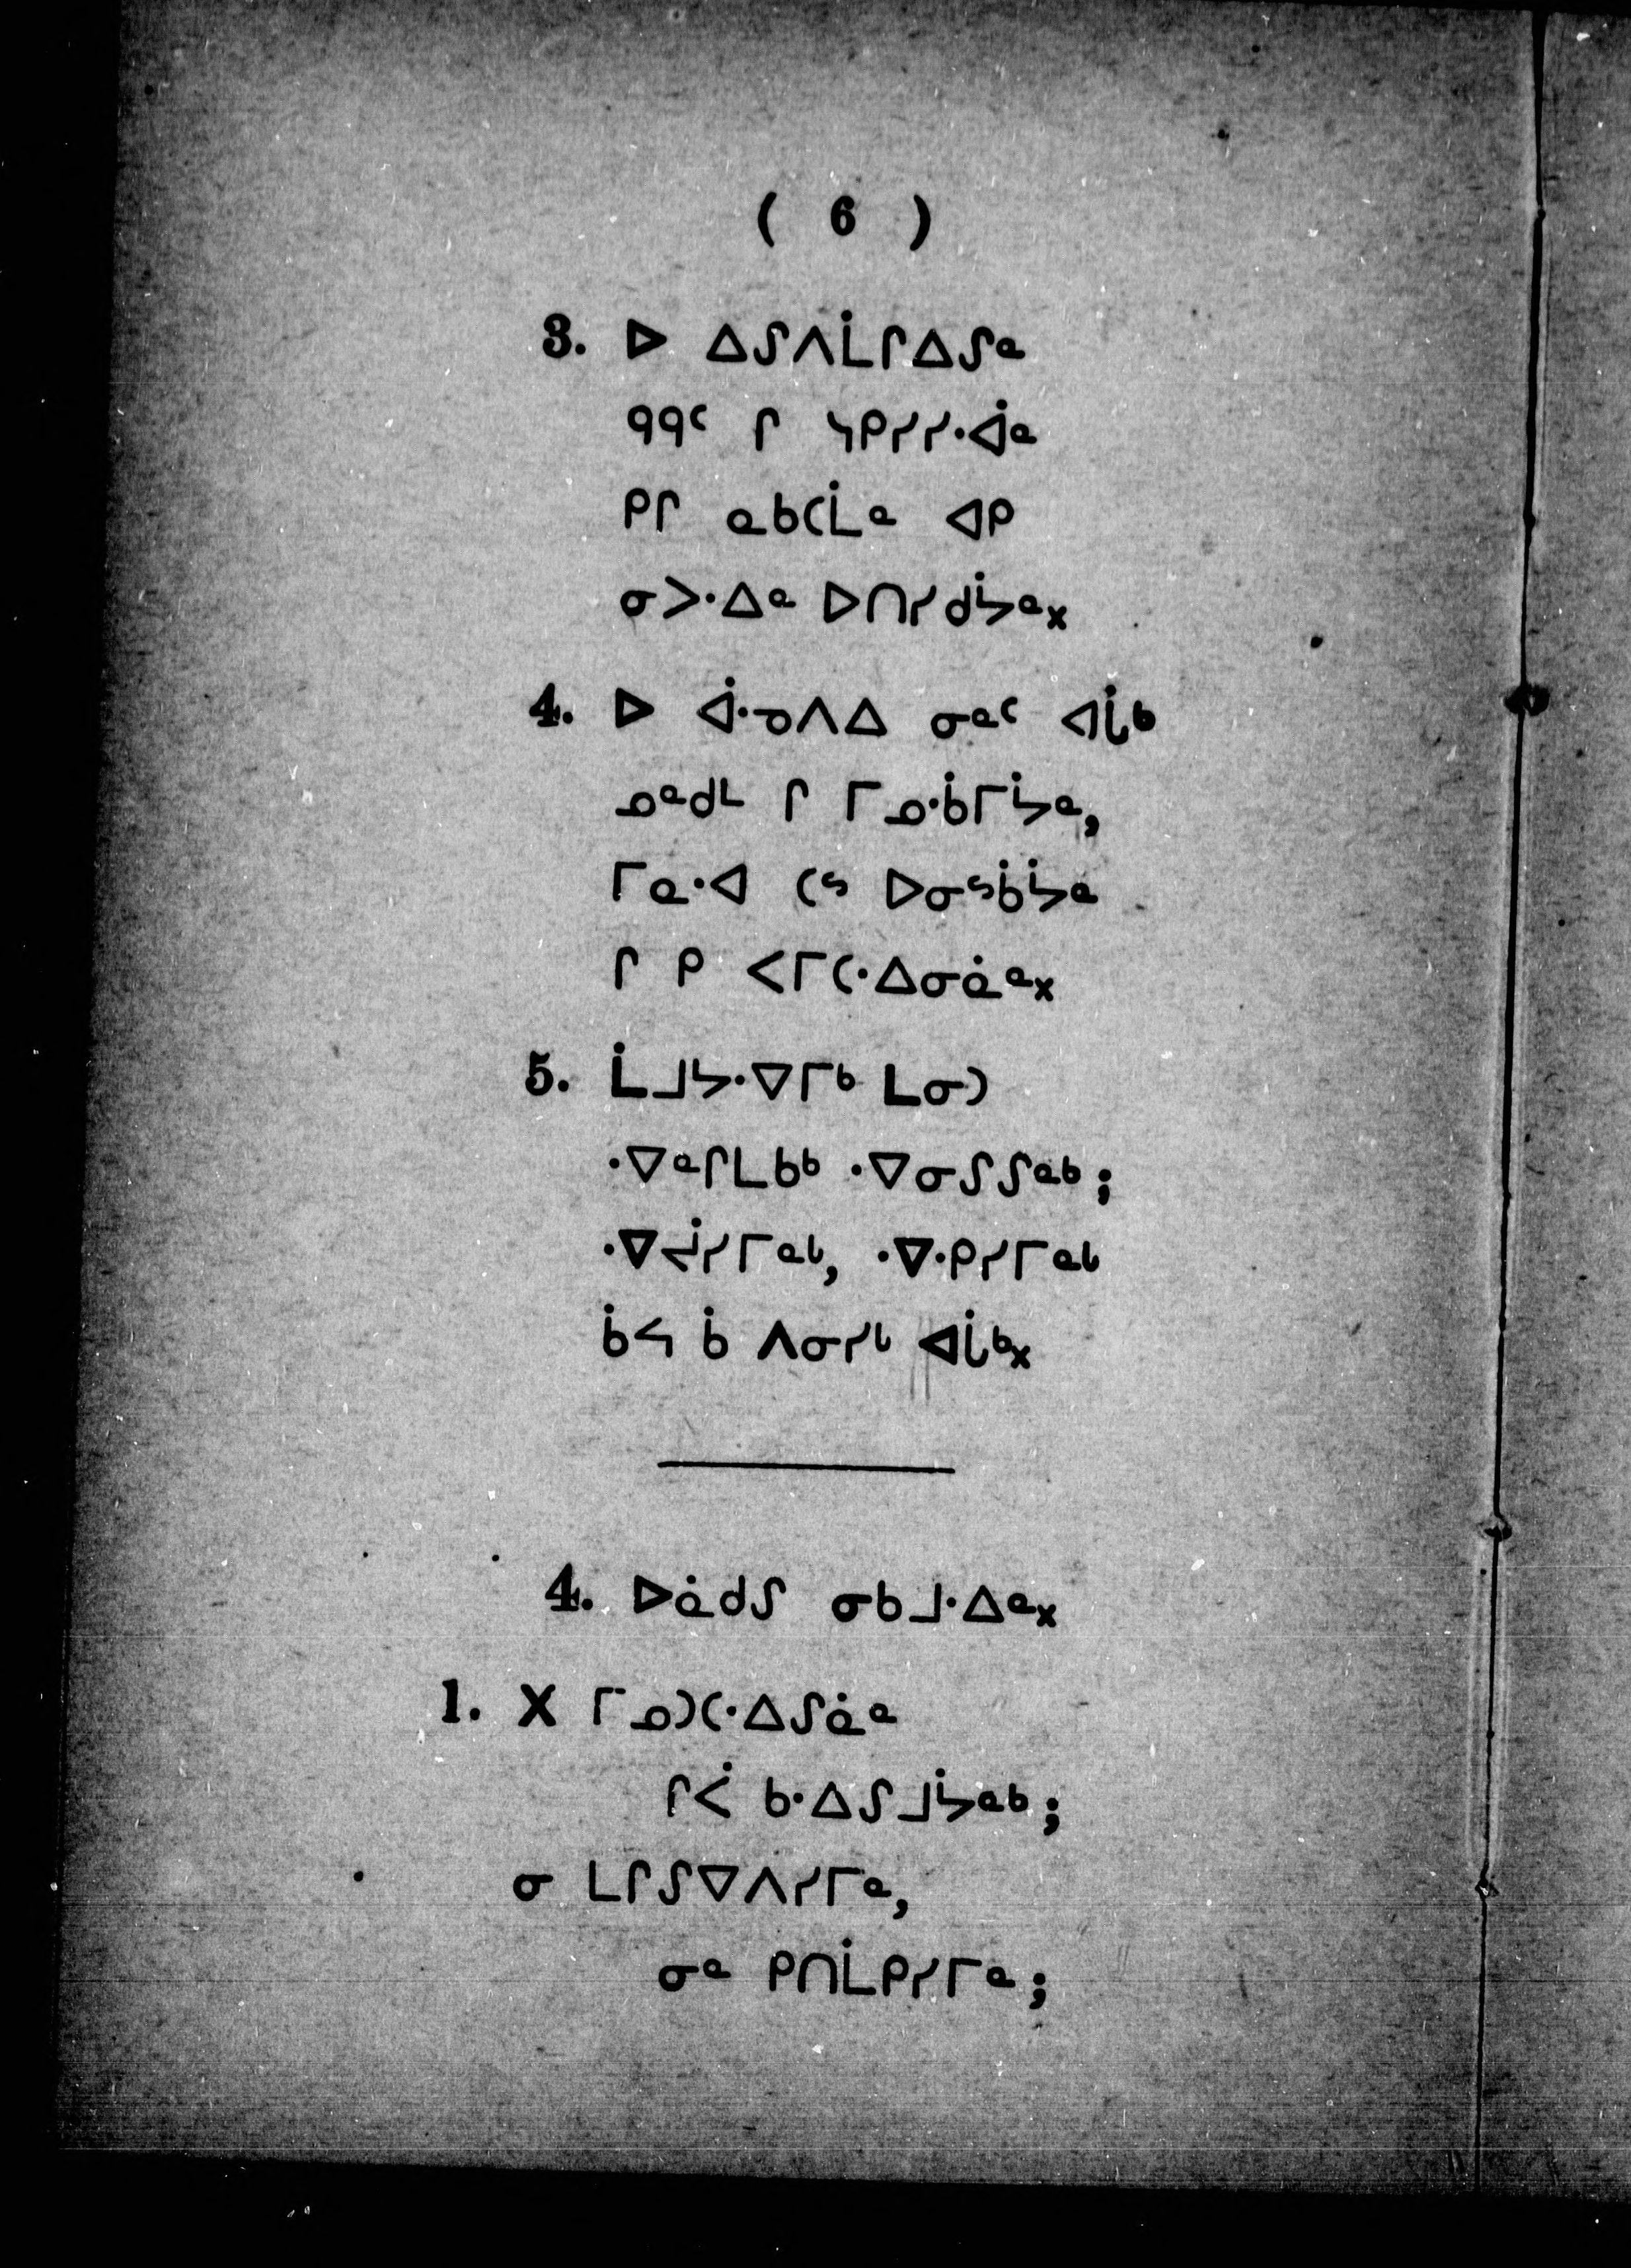 ( 6 )
3. ᐅ ᐃᔑᐱᒫᒋᐃᔑᓐ
ᑫᑫᑦ ᒋ ᓴᑭᓯᓯᐧᐋᓐ
ᑭᒋ ᓇᑲᑕᒫᓐ ᐊᑭ
ᓂᐳᐧᐃᓐ ᐅᑎᓯᑯᔮᓐ᙮
4. ᐅ ᐋᐧᓄᐱᐃ ᓂᓐᑦ ᐊᒑᒃ
ᓄᓐᑯᒻ ᒋ ᒥᓄᐧᑳᒥᔮᓐ,
ᒥᓇᐧᐊ ᑕᔥ ᐅᓂᔥᑳᔮᓐ
ᒋ ᑭ ᐸᒥᑕᐧᐃᓂᓈᓐ᙮
5. ᒫᒧᔭᐧᐁᒥᒃ ᒪᓂᑐ
ᐧᐁᓐᒋᒪᑲᒃ ᐧᐁᓂᔑᔑᓐᒃ;
ᐧᐁᔫᓯᒥᓐᐠ, ᐧᐁᐧᑭᓯᒥᓐᐠ
ᑳᔦ ᑳ ᐱᓂᓯᐨ ᐊᒑᒃ᙮
4. ᐅᓈᑯᔑ ᓂᑲᒧᐧᐃᓐ᙮
1. X ᒥᓄᑐᑕᐧᐃᔑᓈᓐ
ᒋᐹ ᑲᐧᐃᔑᒧᔮᓐᒃ;
ᓂ ᒪᒋᔑᐁᐱᓯᒥᓐ,
ᓂᓐ ᑭᑎᒫᑭᓯᒥᓐ;